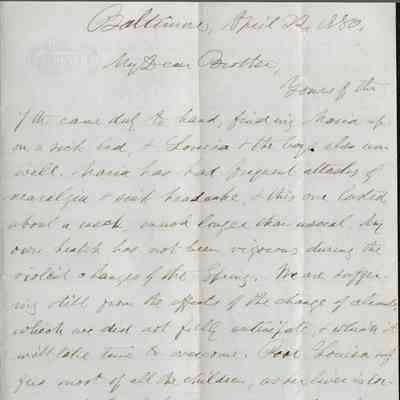 Baltimore, April 12, 1880.
My Dear Brother,
Yours of the
7th came duly to hand, finding Maria up
on a sick bed, & Louisa & the boys also un
well. Maria has had frequent attacks of
neuralgia & sick headache, & this one lasted
about a week, much longer than usual. My
own health has not been vigorous during the
violent changes of the Spring. We are suffer
ing still from the effects of the change of climate,
which we did not fully anticipate, & which it
will take time to overcome. Poor Louisa suf
fers most of all the children, as her liver is tor